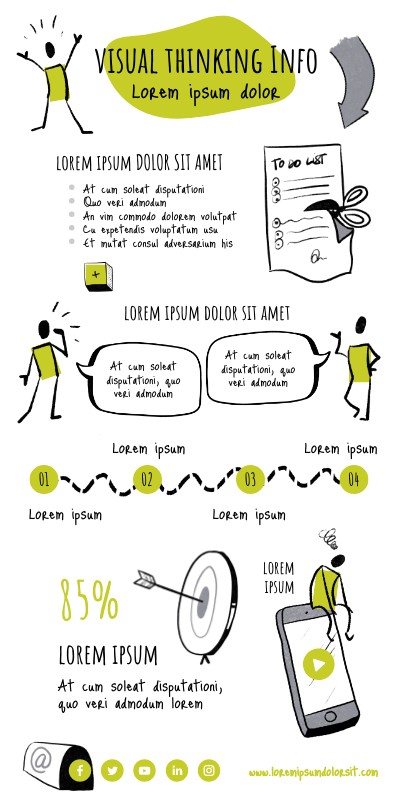 VISUAL THINKING INFO
Lorem ipsum dolor
LOREM IPSUM DOLOR SIT AMET
At cum soleat disputationi
Quo veri admodum
An vim commodo dolorem volutpat
Cu expetendis voluptatum usu
Et mutat consul adversarium his
TO DO LIST
+
LOREM IPSUM DOLOR SIT AMET
At cum soleat
disputationi, quo
veri admodum
At cum soleat
disputationi, quo
veri admodum
Lorem ipsum
Lorem ipsum
01
02
03
04
Lorem ipsum
Lorem ipsum
85%
LOREM IPSUM
At cum soleat disputationi,
quo veri admodum lorem
LOREM
IPSUM
@
www.loremipsundolorsit.com